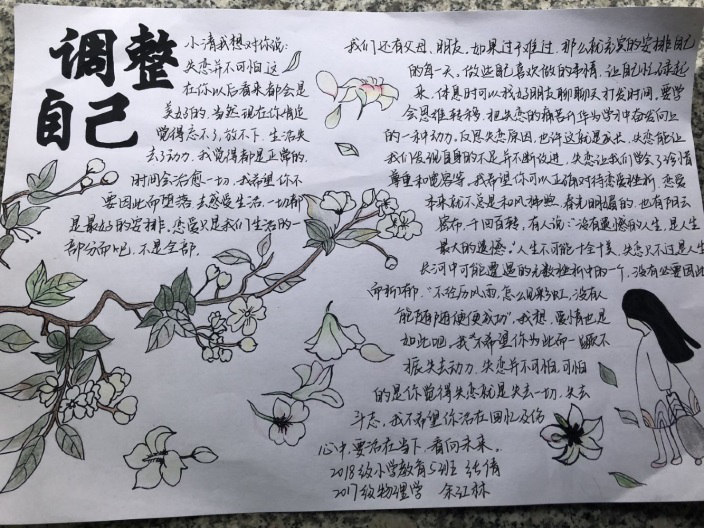 调整
自己
小清我想对你说:
失恋并不可怕,这
在你以后看来都会是
美好的。当然现在你肯定
觉得忘不了,放不下,生活失
去了动力,我觉得都是正常的。
时间会治愈一切,我希望你不
要因此而堕落,去感受生活,一切都
是最好的安排,恋爱只是我们生活的一
部分而已,不是全部。
我们还有父母、朋友,如果过于难过,那么就充实的安排自己
的每一天,做些自己喜欢做的事情,让自己忙碌起
来,休息时可以找好朋友聊聊天打发时间,要学
会思维转移,把失恋的痛苦升华为学习中奋发向上
的一种动力,反思失恋原因,也许这就是成长,失恋能让
我们发现自身的不足并不断改进,失恋让我们学会了珍惜
尊重和宽容等,我希望你可以正确对待恋爱挫折,恋爱
本来就不总是和风拂煦、春光明媚的,也有阴云
密布,千回百转,有人说:“没有遗憾的人生,是人生
最大的遗憾。”人生不可能十全十美,失恋只不过是人生
长河中可能遭遇的无数挫折中的一个,没有必要因此
而抑郁,“不经历风雨,怎么见彩虹,没有人
能随随便便成功”,我想,爱情也是
如此吧,我不希望你为此而一蹶不
振失去动力,失恋并不可怕,可怕
的是你觉得失恋就是失去一切,失去
斗志,我不希望你活在回忆及伤
心中,要活在当下,看向未来。
2018级小学教育5班 张倩
2017级物理学 余江林